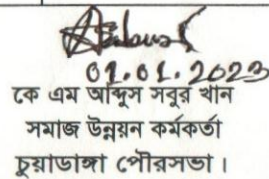 01.01.2023
কে এম আব্দুস সবুর খান
সমাজ উন্নয়ন কর্মকর্তা
চুয়াডাঙ্গা পৌরসভা।